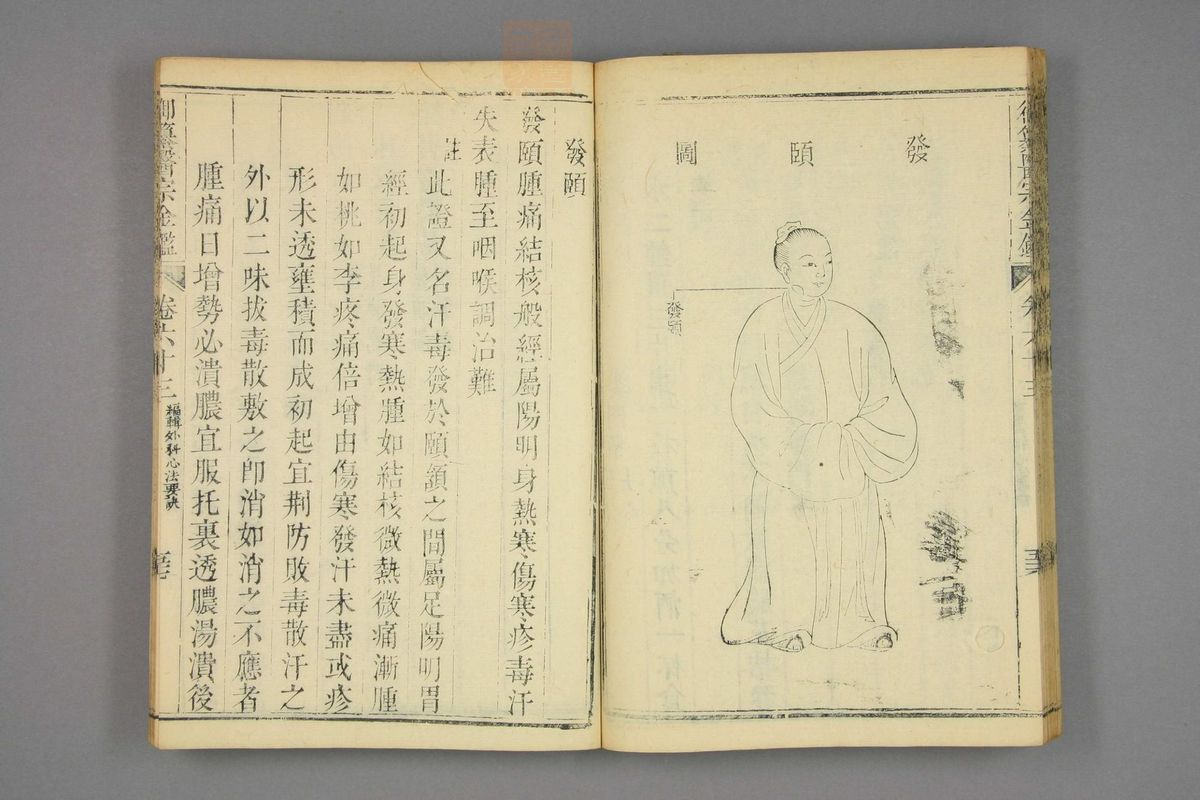 御纂醫宗金鑑
卷六十三
發頤圖
發頤
發頤
發頤腫痛結核般經屬陽明身熱寒傷寒疹毒汗
失表腫至咽喉調治難
註
此證又名汗毒發於頤頷之間屬足陽明胃
經初起身發寒熱腫如結核微熱微痛漸腫
如桃如李疼痛倍增由傷寒發汗未盡或疹
形未透壅積而成初起宜荆防敗毒散汗之
外以二味拔毒散敷之卽消如消之不應者
腫痛日增勢必潰膿宜服托裏透膿湯潰後
御纂醫宗金鑑
卷六十三
編輯外科心法要訣